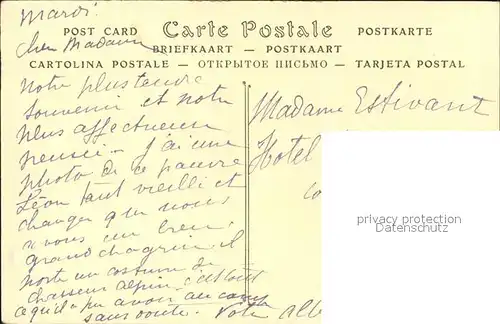 Mardi.
POST CARD Carte Postale POSTKARTE
Cher Madame
BRIEFKAART — POSTKAART
CARTOLINA POSTALE — ОТКРЫТОЕ ПИСЬМО — TARJETA POSTAL
Notre plus tendre
souvenir et notre
plus affectueuse
pensée — J'ai une
photo de ce pauvre
Léon tant vieilli et
changer que nous
avons un
grand chagrin, il
porte un costume de
chasseur alpin, c'est tout
ce qu'il a pu avoir au camp
sans doute. Votre
Madame Estivant
Hotel
privacy protection
www.oldthing.com